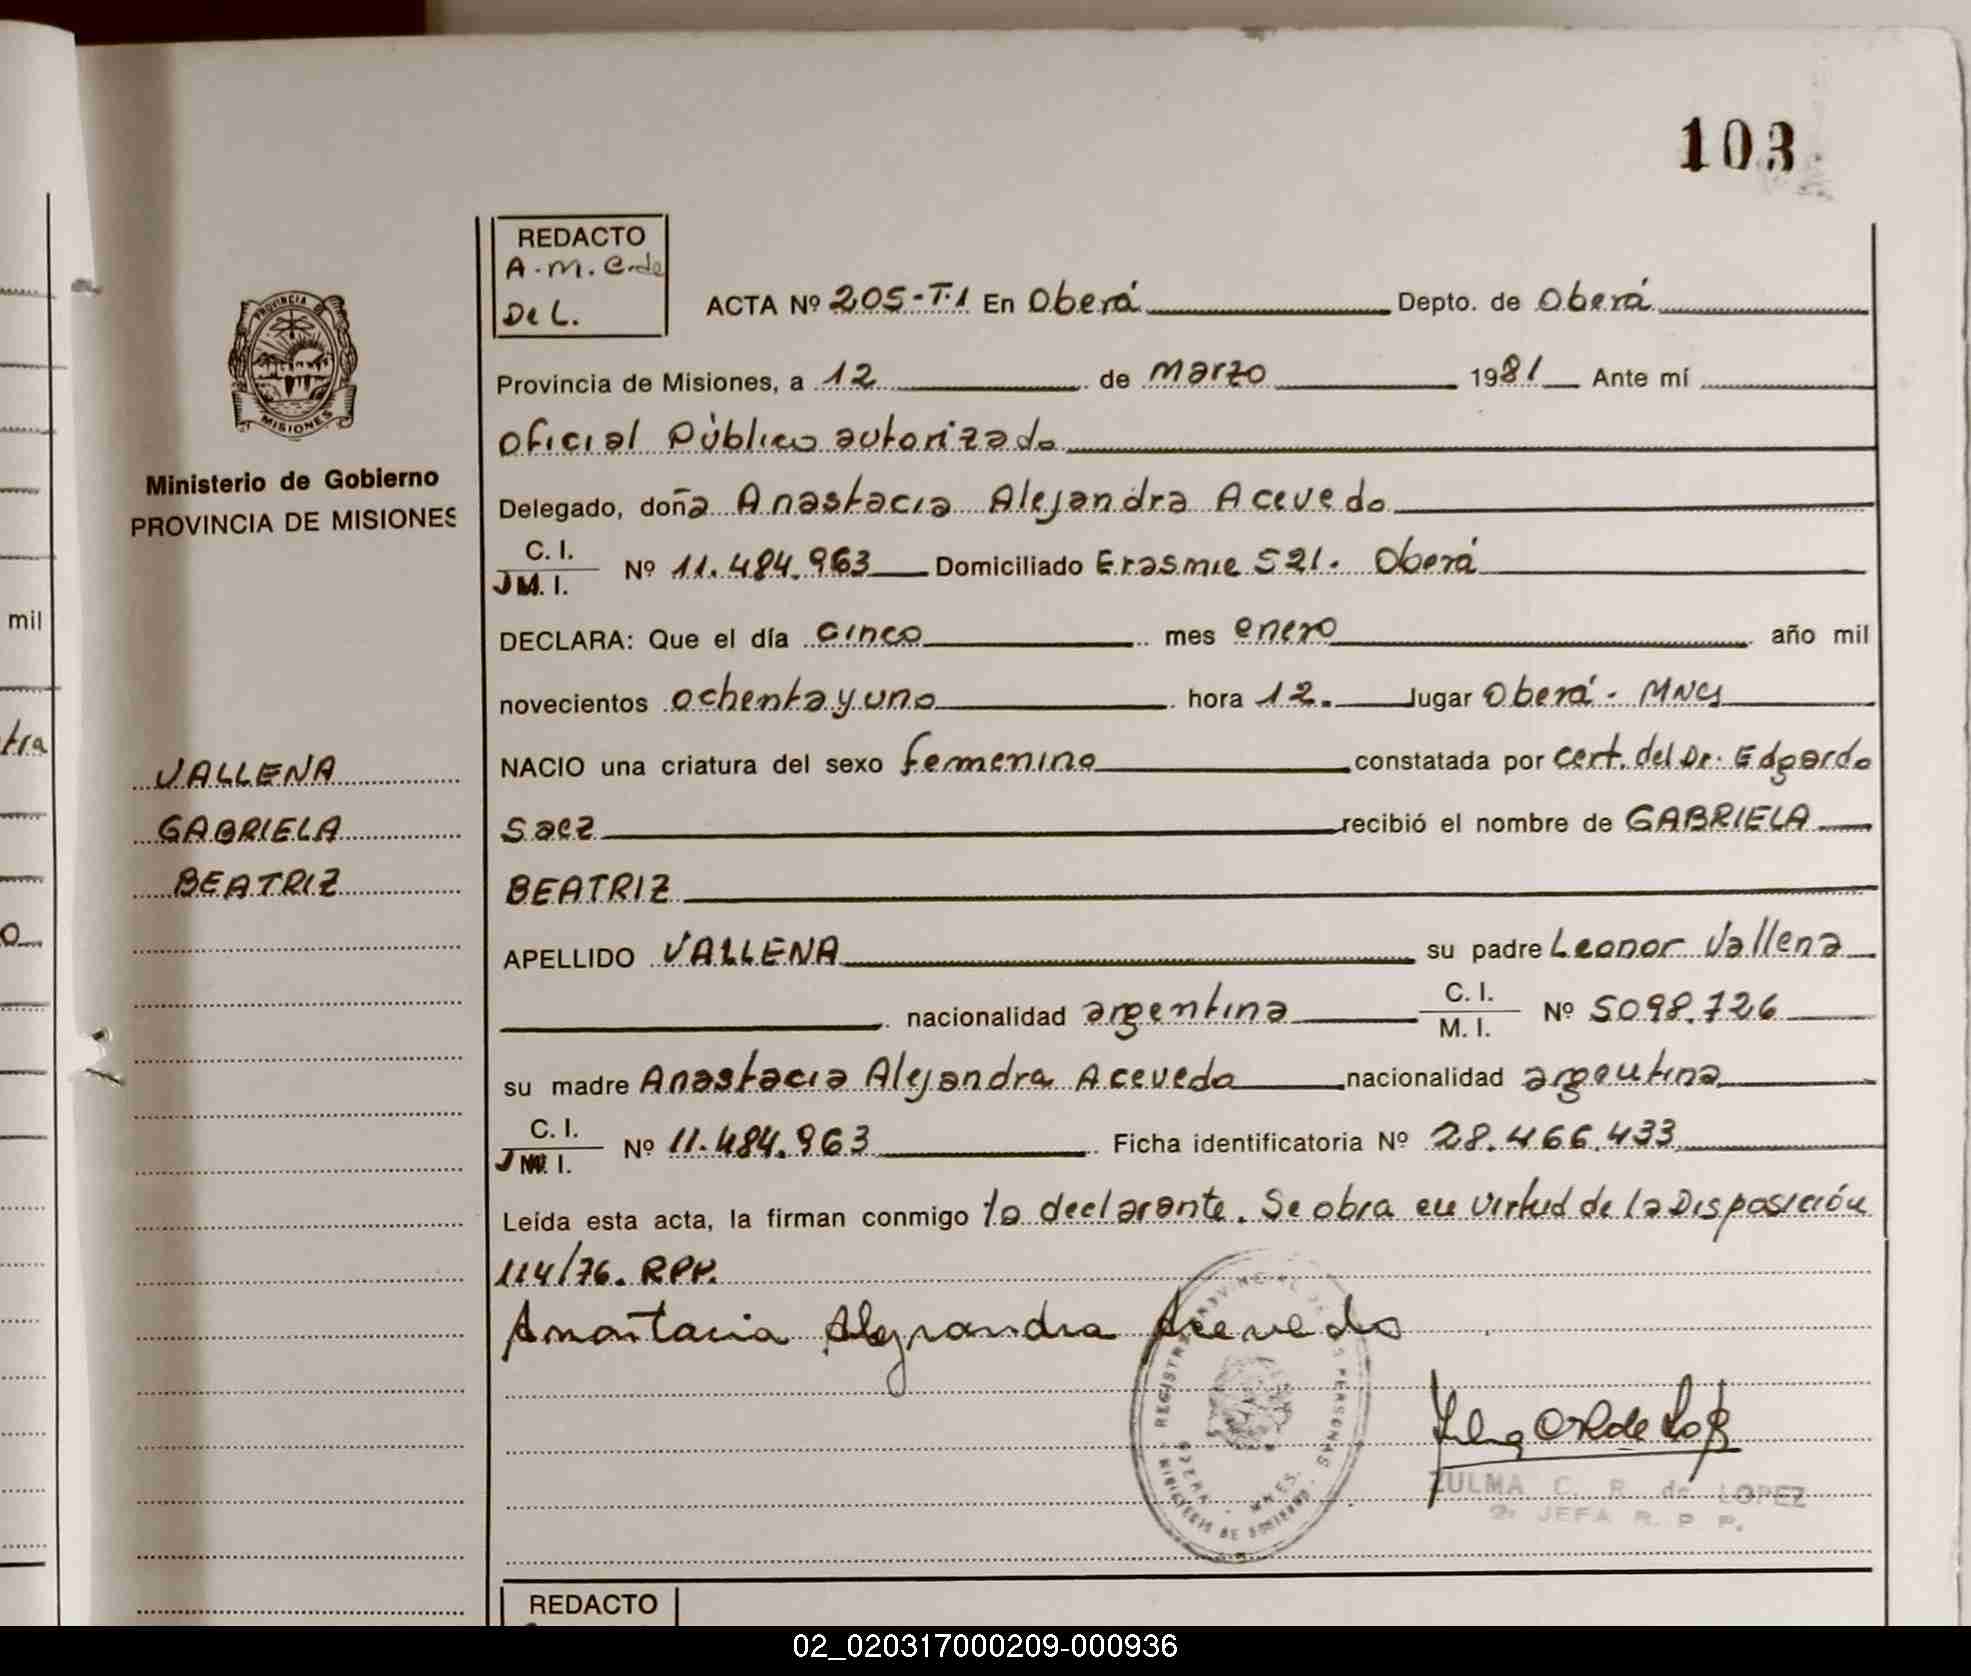 103
REDACTO
A.M.C.de
De L.
ACTA Nº 205-T.1 En Oberá Depto. de Oberá
Provincia de Misiones, a 12 de Marzo 1981 Ante mí
Oficial Público autorizado
Delegado, doña Anastacia Alejandra Acevedo
C. I.
M. I. Nº 11.484.963 Domiciliado Erasmie 521. Oberá
DECLARA: Que el día cinco mes enero año mil
novecientos ochenta y uno hora 12. Jugar Oberá - MNes
NACIO una criatura del sexo femenino constatada por cert. del Dr. Edgardo
Saez recibió el nombre de GABRIELA
BEATRIZ
APELLIDO VALLENA su padre Leonor Vallena
nacionalidad argentina C. I. M. I. Nº 5098.726
su madre Anastacia Alejandra Acevedo nacionalidad argentina
C. I.
M. I. Nº 11.484.963 Ficha identificatoria Nº 28.466.433
Leída esta acta, la firman conmigo la declarante. Se obra en virtud de la Disposición
114/76. RPP.
Anastacia Alejandra Acevedo
ZULMA C. R. de LOPEZ
2º JEFA R. P. P.
REGISTRO PROVINCIAL DE LAS PERSONAS
OBERA - MNES.
MINISTERIO DE GOBIERNO
REDACTO
PROVINCIA
MISIONES
Ministerio de Gobierno
PROVINCIA DE MISIONES
VALLENA
GABRIELA
BEATRIZ
mil
tra
o
02_020317000209-000936